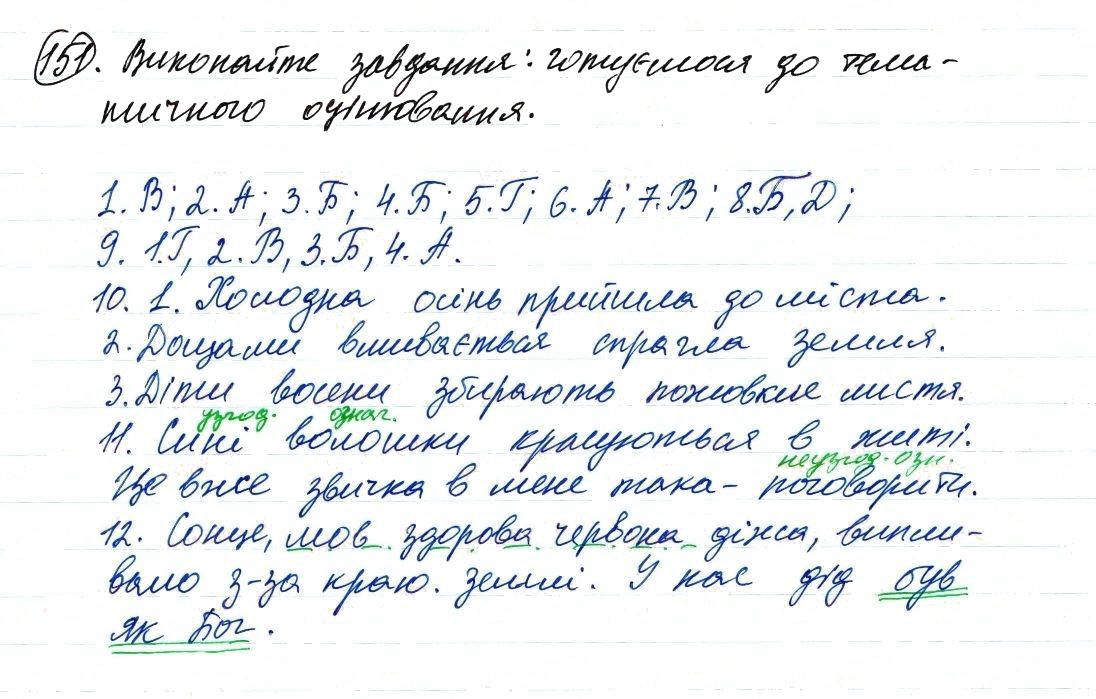 151. Виконайте завдання: готуємося до тема-
тичного оцінювання.
1. В; 2. А; 3. Б; 4. Б; 5. Г; 6. А; 7. В; 8. Б, Д;
9. 1. Г, 2. В, 3. Б, 4. А.
10. 1. Холодна осінь прийшла до міста.
2. Дощами вмивається спрагла земля.
3. Діти восени збирають пожовкле листя.
узгод. означ.
11. Сині волошки красуються в житі.
неузгод. озн.
Це вже звичка в мене така - поговорити.
12. Сонце, мов здорова червона діжа, випли-
вало з-за краю. землі. У нас дід був
як Бог.